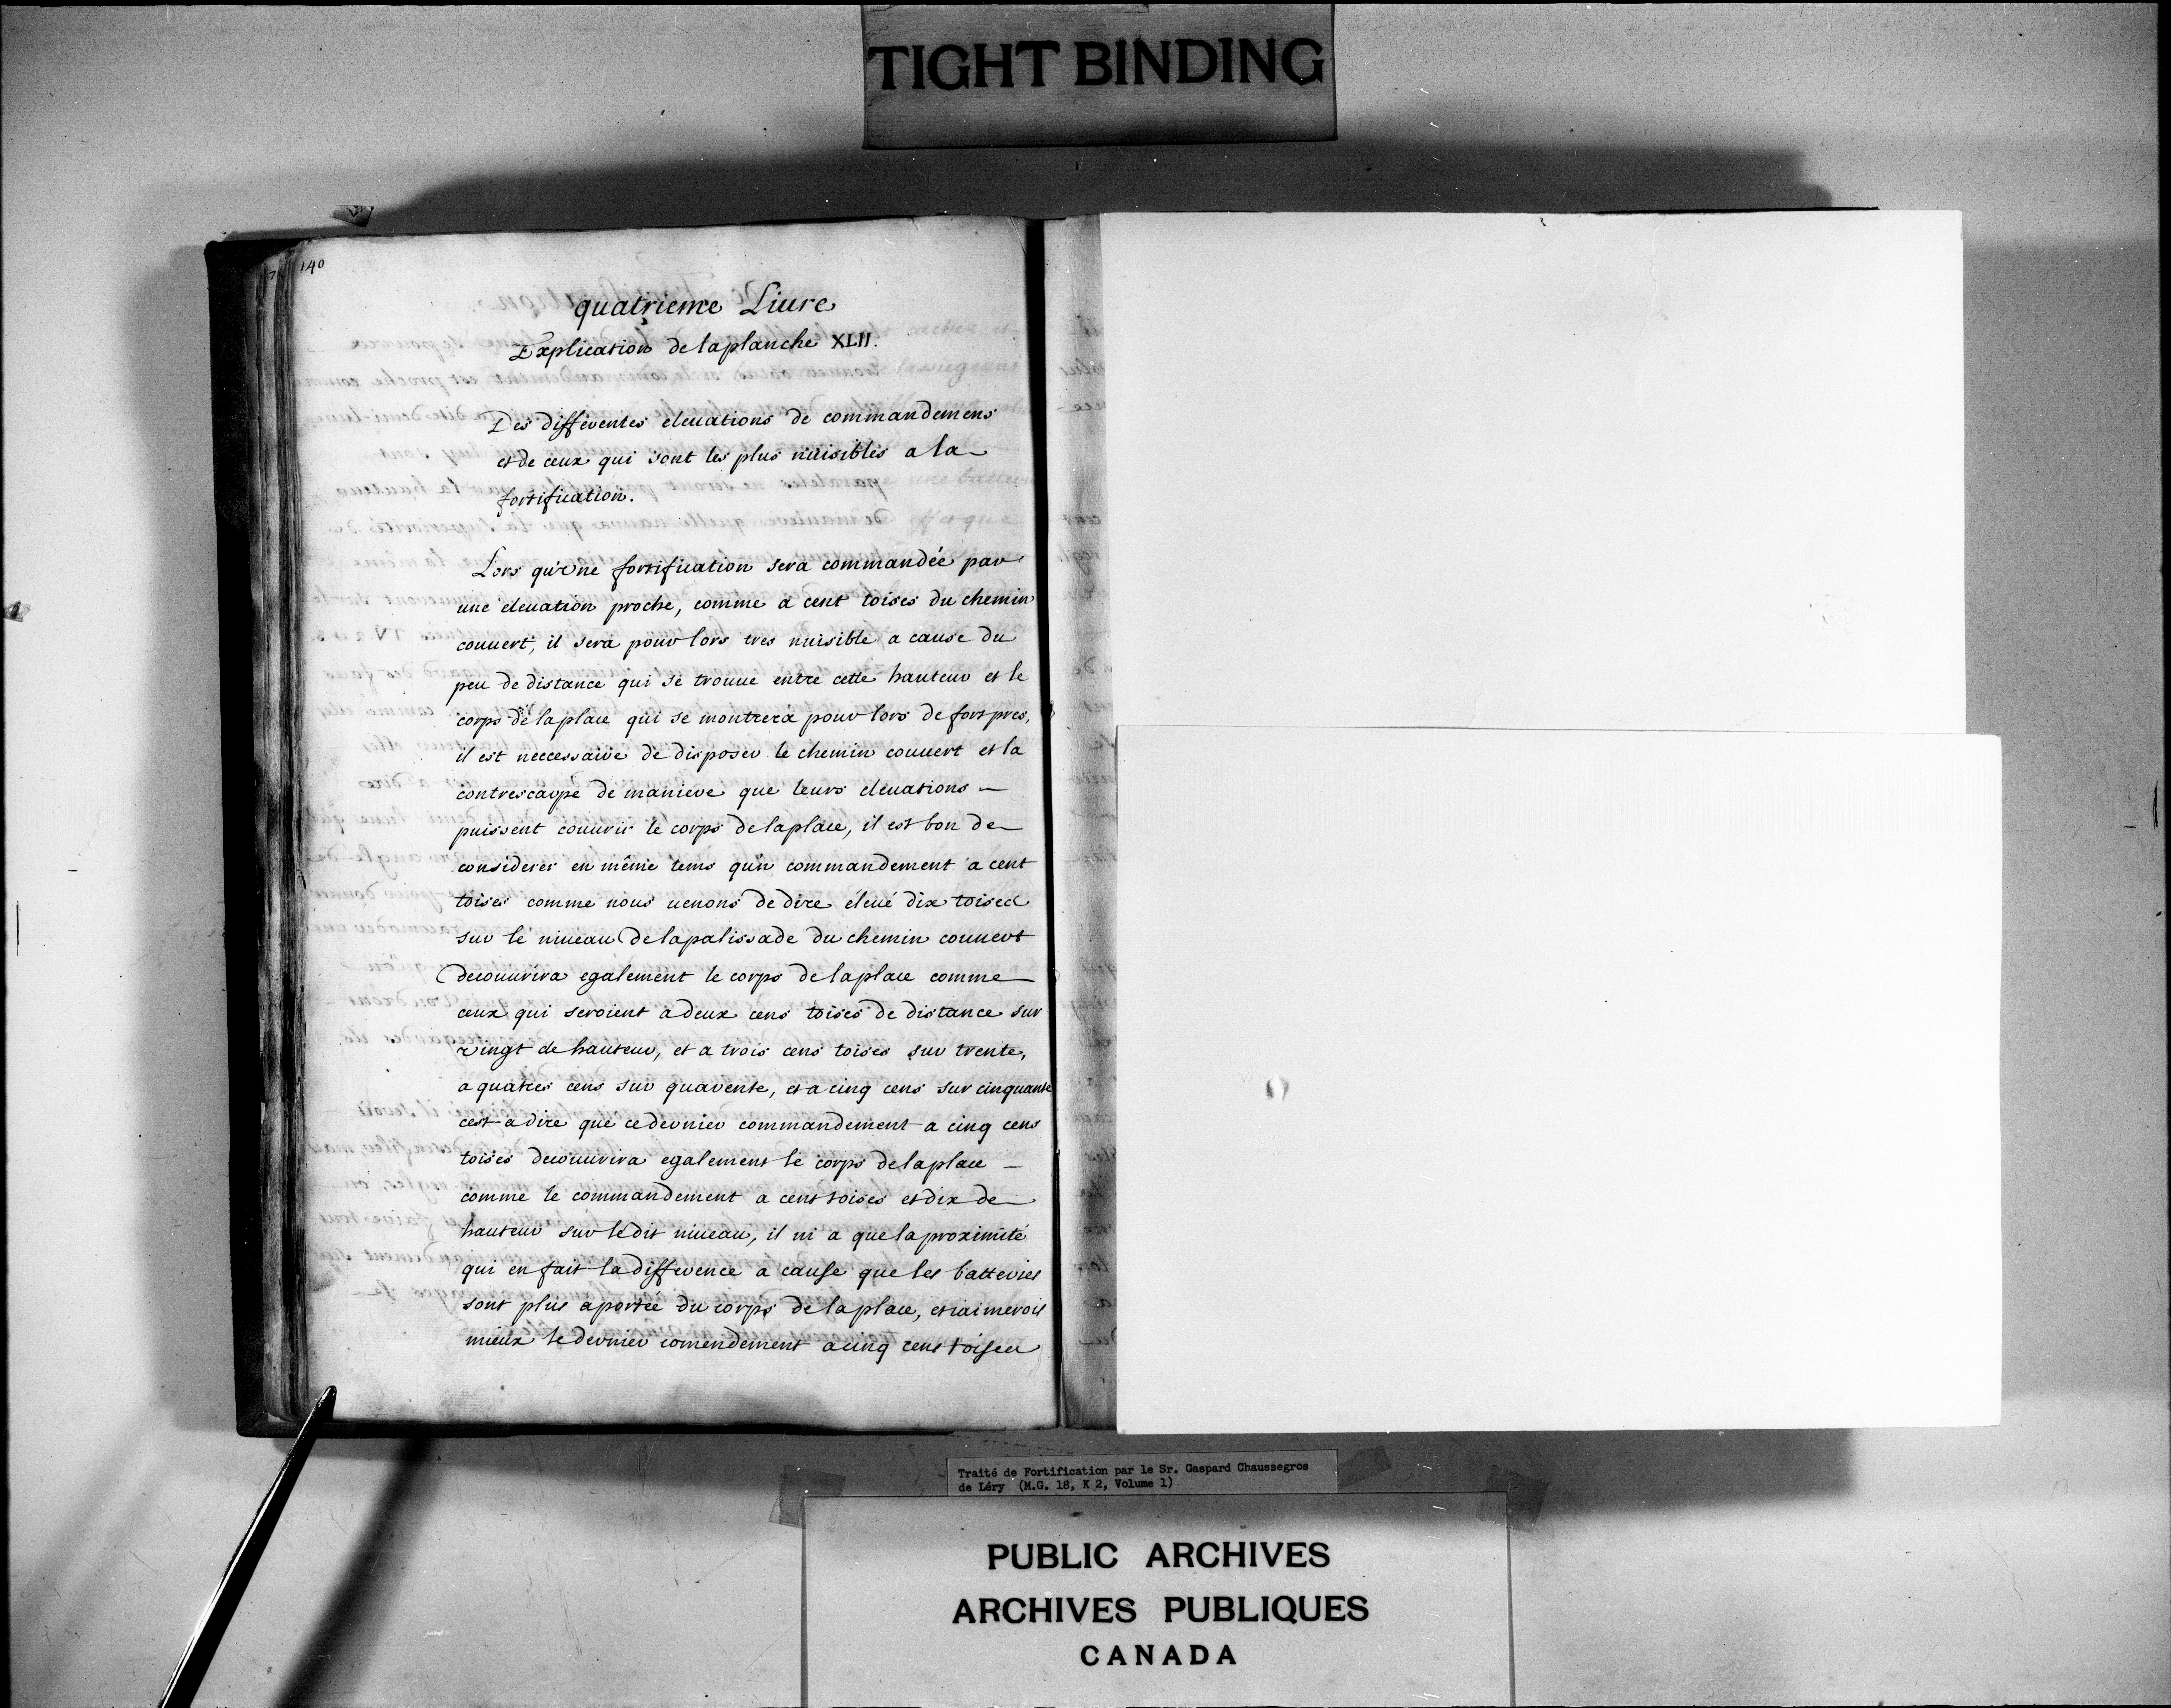 TIGHT BINDING
140
quatrieme Liure
Explication de la planche XLII.
Des differentes eleuations de commandemens
et de ceux qui sont les plus nuisibles a la
fortification.
Lors qu'vne fortification sera commandée par
une eleuation proche, comme a cent toises du chemin
couuert, il sera pour lors tres nuisible a cause du
peu de distance qui se trouue entre cette hauteur et le
corps de la place qui se montrera pour lors de fort pres,
il est neccessaire de disposer le chemin couuert et la
contrescarpe de maniere que leurs eleuations
puissent couurir le corps de la place, il est bon de
considerer en même tems qu'vn commandement a cent
toises comme nous uenons de dire éleué dix toises
sur le niueau de la palissade du chemin couuert
decouurira egalement le corps de la place comme
ceux qui seroient a deux cens toises de distance sur
vingt de hauteur, et a trois cens toises sur trente,
a quatres cens sur quarente, et a cinq cens sur cinquante
cest a dire que ce dernier commandement a cinq cens
toises decouurira egalement le corps de la place
comme le commandement a cent toises et dix de
hauteur sur le dit niueau, il ni a que la proximité
qui en fait la difference a cause que les batteries
sont plus a portée du corps de la place, et iaimerois
mieux le dernier comendement a cinq cens toises
Traité de Fortification par le Sr. Gaspard Chaussegros
de Léry (M.G. 18, K 2, Volume 1)
PUBLIC ARCHIVES
ARCHIVES PUBLIQUES
CANADA